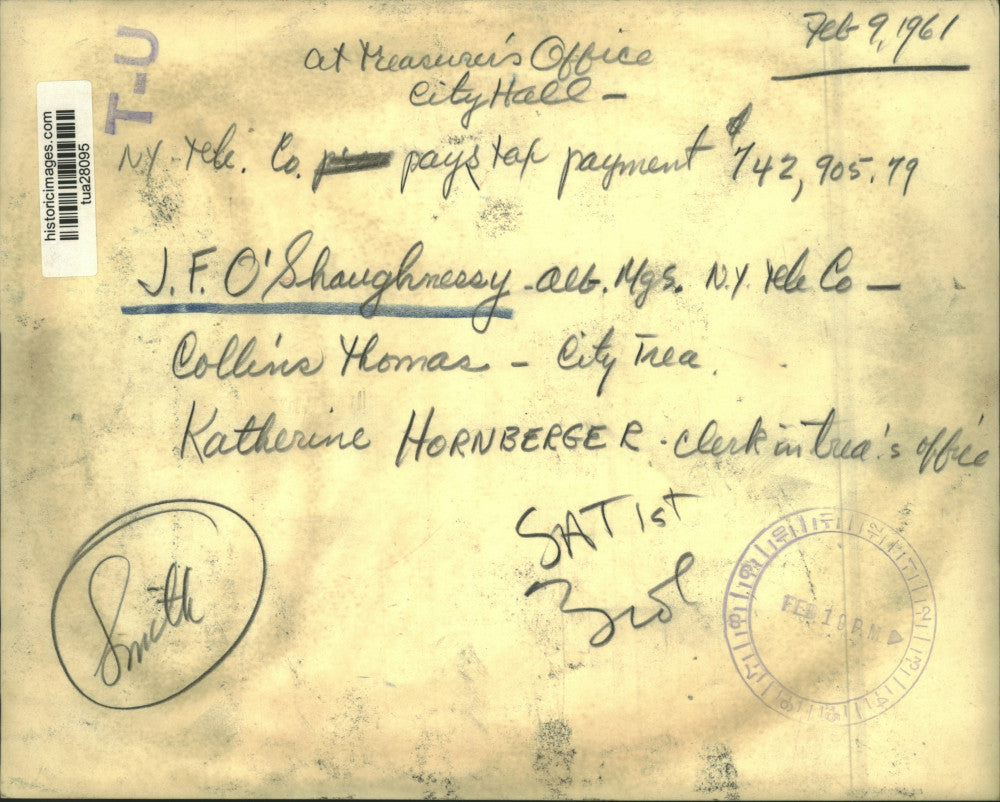 Feb 9, 1961
T-U
at Treasurer's Office
City Hall –
historicimages.com
tua28095
N.Y. Tele. Co. pays tax payment $742,905.79
J. F. O'Shaughnessy - Alb. Mgr. N.Y. Tele Co –
Collins Thomas – City Trea.
Katherine HORNBERGER - clerk in trea's office
SAT 1st
Smith
FEB 10 PM